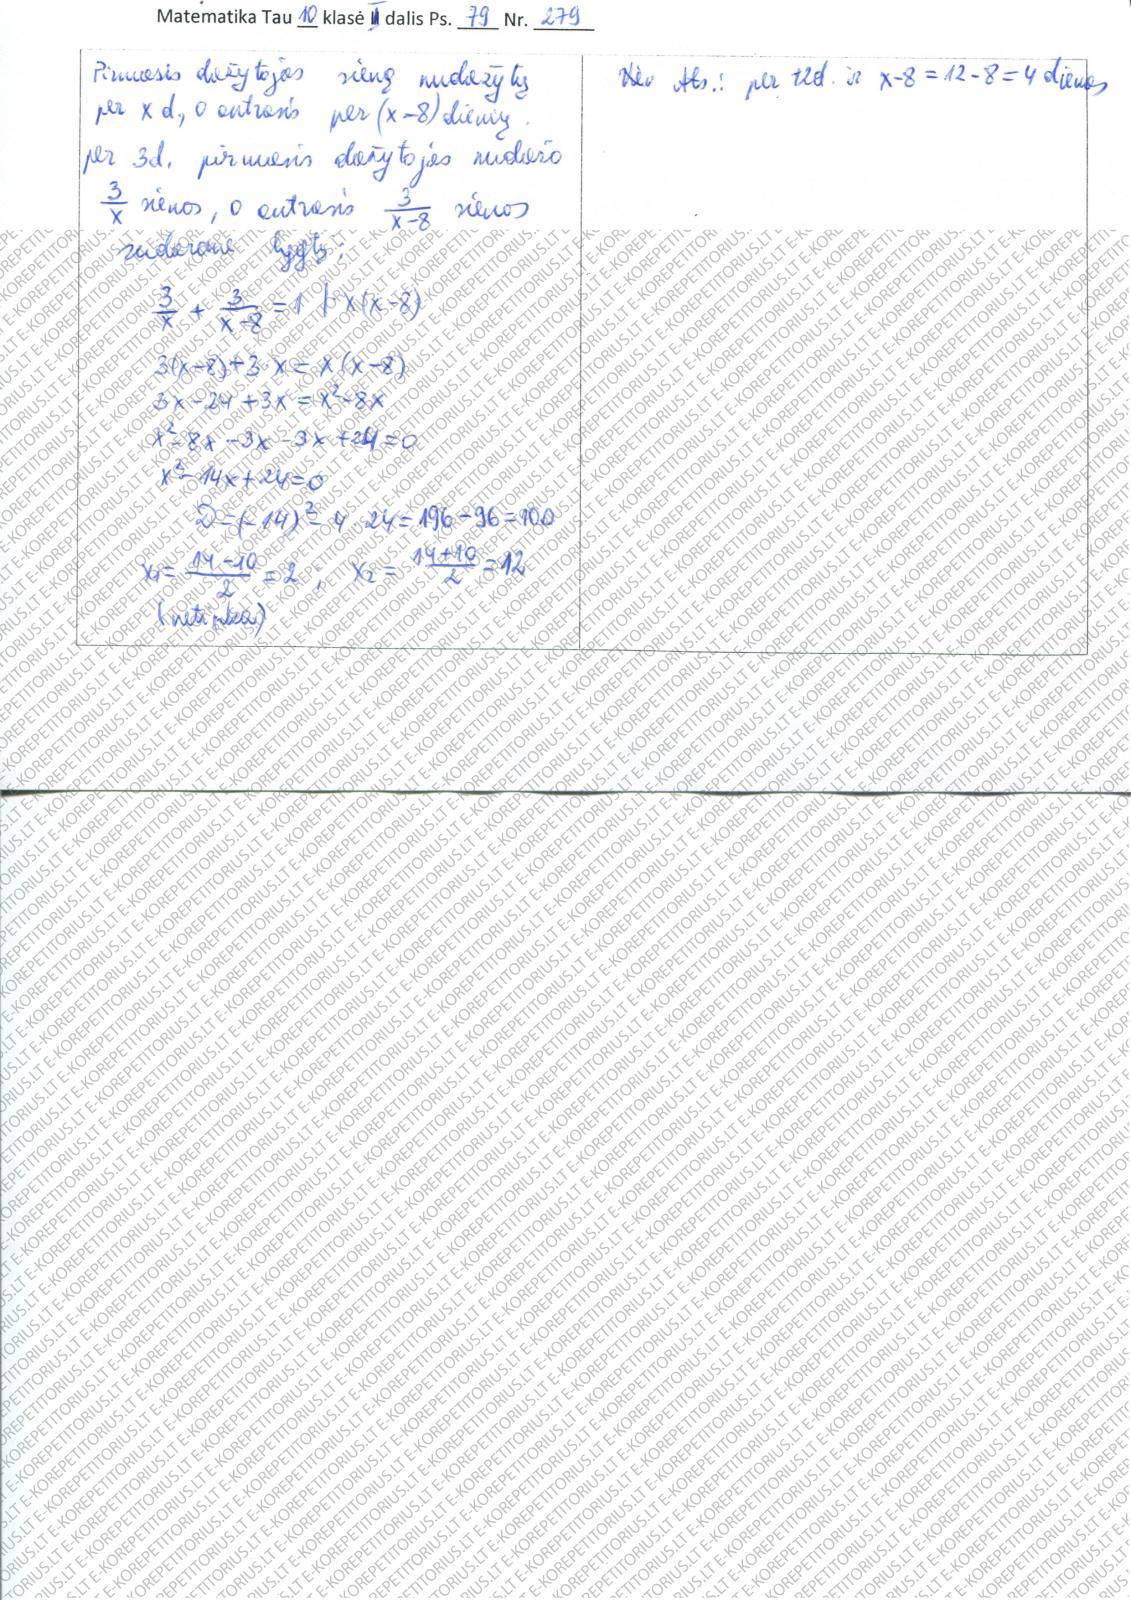 Matematika Tau 10 klasė II dalis Ps. 79 Nr. 279
Pirmasis dažytojas sieną nudažytų
per x d., o antrasis per (x-8) dienų.
per 3d. pirmasis dažytojas nudažo
3/x sienos, o antrasis 3/(x-8) sienos
sudarome lygtį:
3/x + 3/(x-8) = 1 | x(x-8)
3(x-8)+3·x = x(x-8)
3x-24+3x = x²-8x
x²-8x-3x-3x+24=0
x²-14x+24=0
D=(-14)²-4·24=196-96=100
x₁ = (14-10)/2 = 2 ; x₂ = (14+10)/2 = 12
(netinka)
Ats.: per 12d. ir x-8 = 12-8 = 4 dienas
E-KOREPETITORIUS.LT